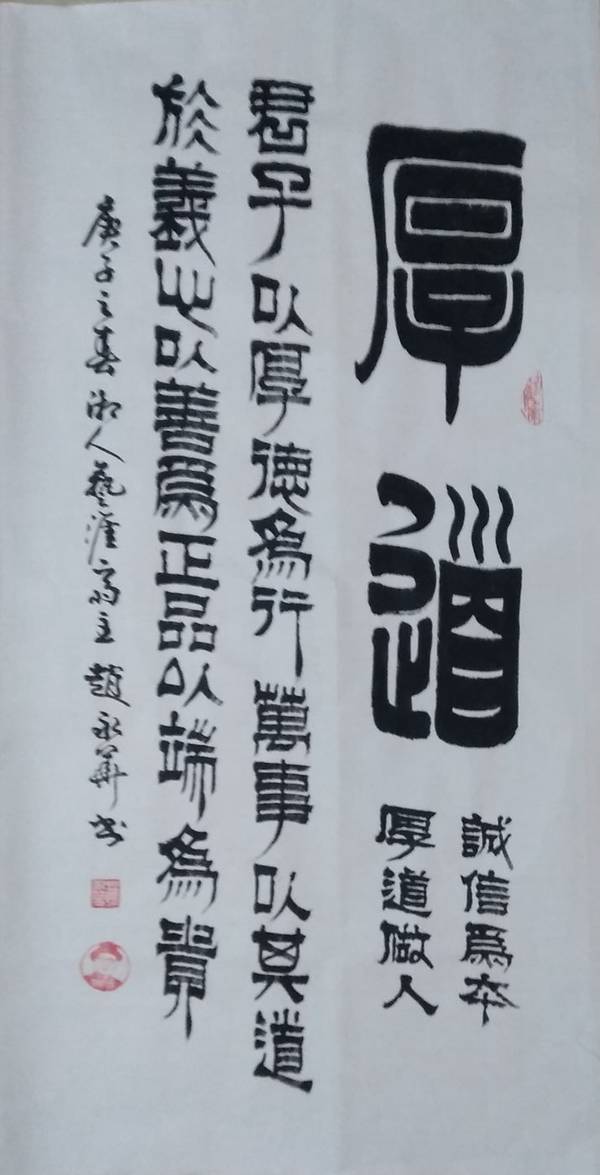 厚道
誠信爲本
厚道做人
君子以厚德為行萬事以其道
於義之以善爲正品以端為貴
庚子之春湘人藝涯齋主趙永華書